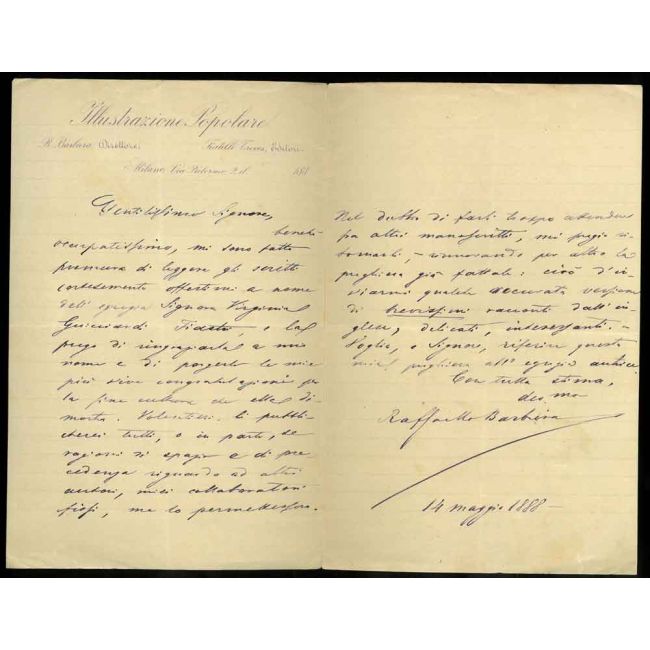 Illustrazione Popolare
R. Barbiera, Direttore. Fratelli Treves, Editori.
Milano, Via Palermo, 2. il 188
Gentilissimo Signore,
benchè
occupatissimo, mi sono fatto
premura di leggere gli scritti
cortesemente offertimi a nome
dell'egregia Signora Virginia
Guicciardi, e La
prego di ringraziarla a mio
nome e di porgerle le mie
più vive congratulazioni per
la fine cultura che ella di-
mostra. Volentieri li pubbli-
cherei tutti, o in parte, se
ragioni di spazio e di pre-
cedenza riguardo ad altri
autori, miei collaboratori
fissi, me lo permettessero.
Nel dubbio di farli troppo attendere
fra altri manoscritti, mi pregio ri-
tornarli, rinnovando per altro la
preghiera già fattale: cioè d'in-
viarmi qualche accurata versione
di brevissimi racconti dall'in-
glese, delicati, interessanti.
Voglia, o Signore, riferire questa
mia preghiera all'egregia autrice.
Con tutta stima,
dev.mo
Raffaello Barbiera
14 maggio 1888